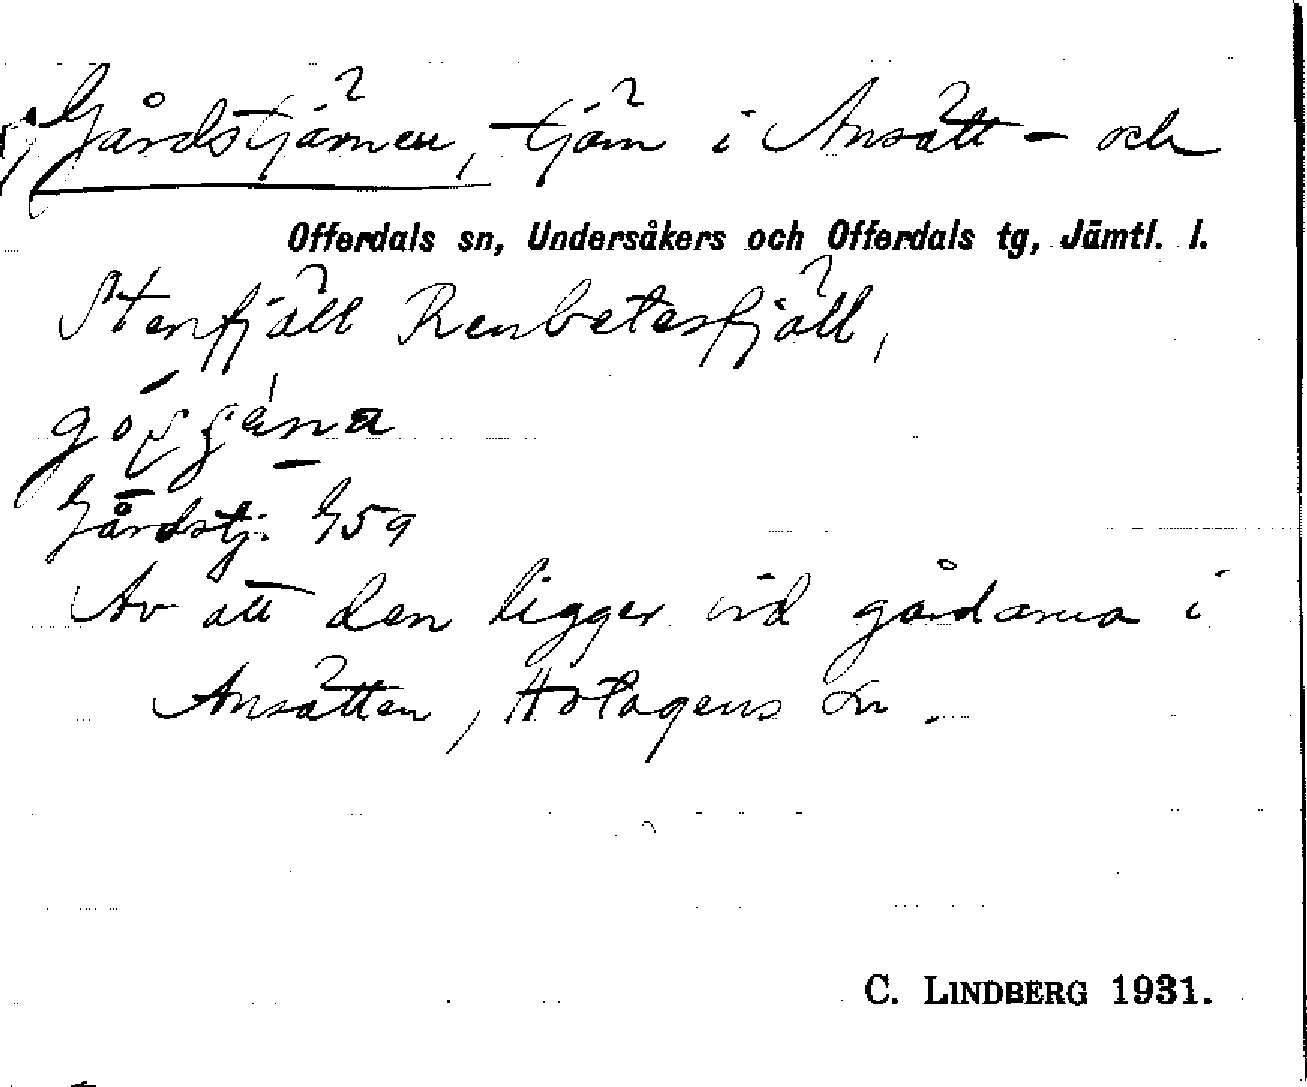 Gårdstjärnen, tjärn i Ansätt- och
Offerdals sn, Undersåkers och Offerdals tg, Jämtl. l.
Stenfjäll Renbetesfjäll,
Gårdstj. G59
Av att den ligger vid gårdarna i
Ansätten, Hotagens sn.
C. LINDBERG 1931.